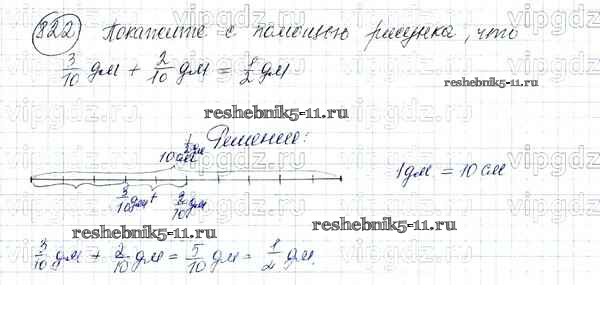 822 Покажите с помощью рисунка, что
3/10 дм + 2/10 дм = 1/2 дм
reshebnik5-11.ru
reshebnik5-11.ru
Решение:
1/2 дм
10 см
1 дм = 10 см
3/10 дм + 2/10 дм
reshebnik5-11.ru
reshebnik5-11.ru
3/10 дм + 2/10 дм = 5/10 дм = 1/2 дм.
vipgdz.ru